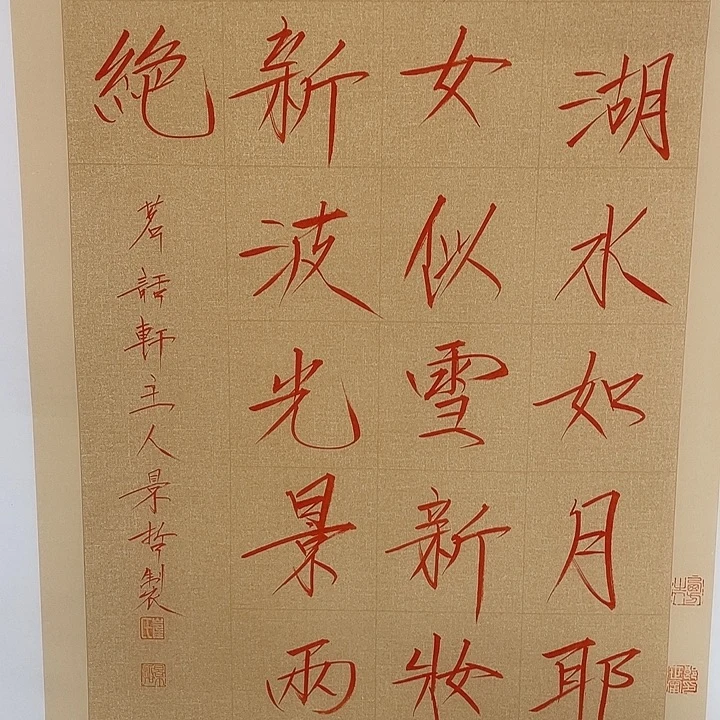 湖水如月耶
女似雪新妝
新波光景兩
絶
茗話軒主人景哲製